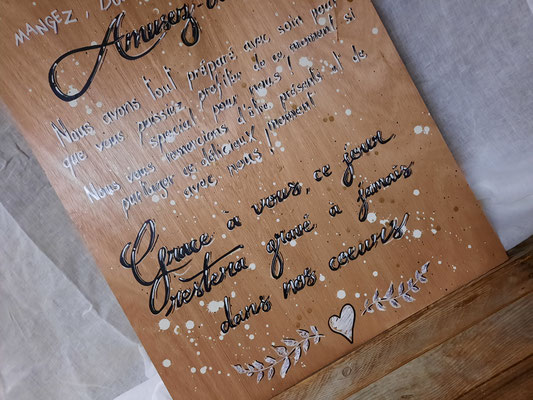 MANGEZ,
Amusez-
Nous avons tout préparé avec soin pour
que vous puissiez profiter de ce moment si
spécial pour nous !
Nous vous remercions d'être présents et de
partager ce délicieux moment
avec nous !
Grâce à vous, ce jour
restera gravé à jamais
dans nos coeurs